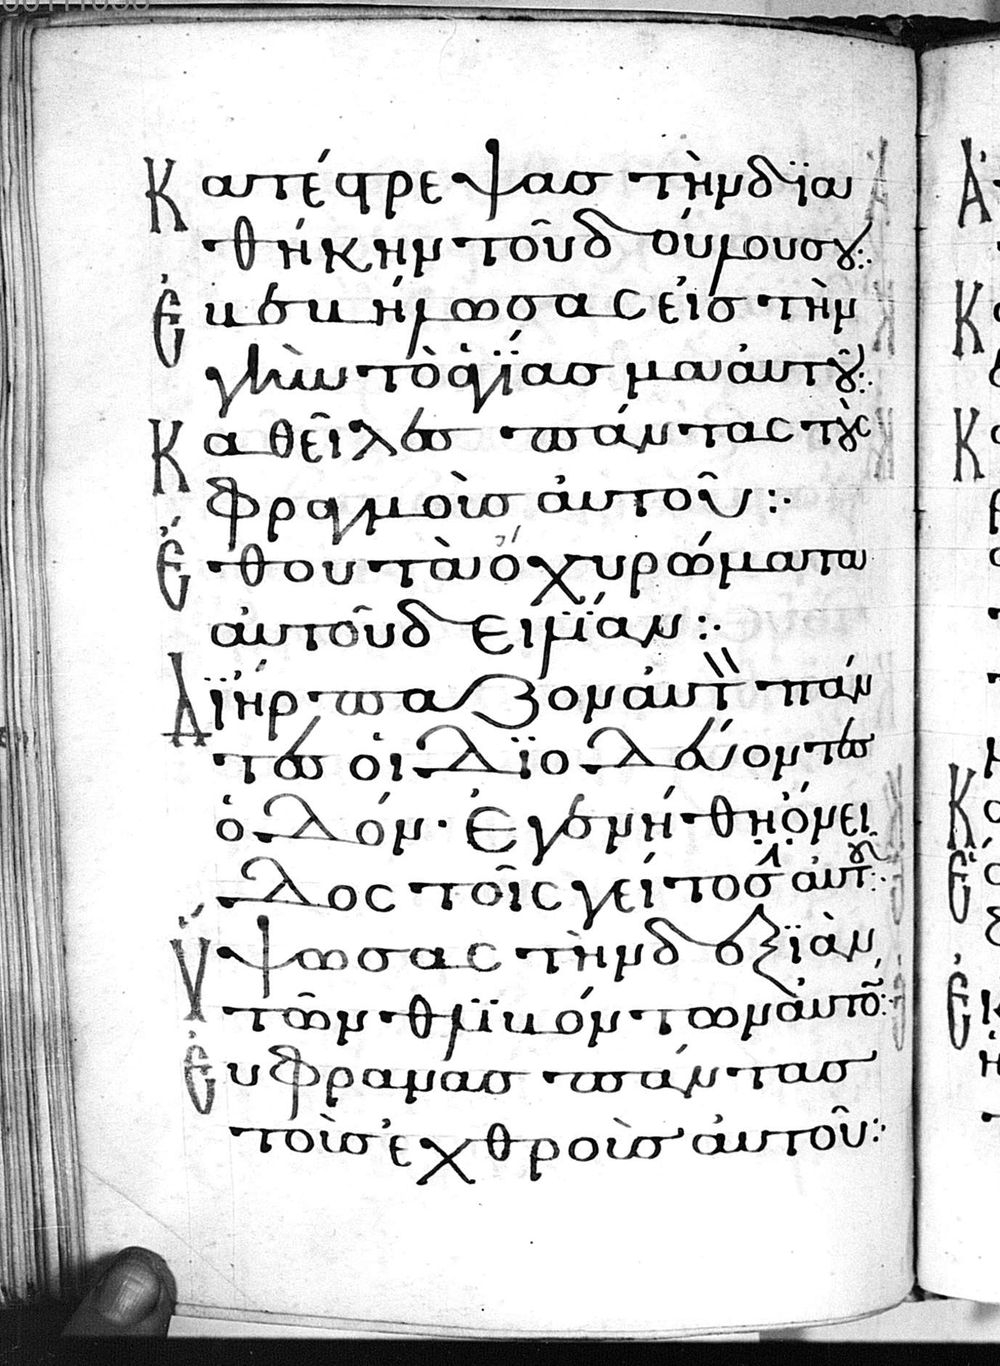 Κατέστρεψας τὴν δϊα
θήκην τοῦ δούλου σου:
Ἐβεβήλωσας εἰς τὴν
γῆν τὸ ἁγΐασμα αὐτοῦ:
Καθεῖλες πάντας τοὺς
φραγμοὺς αὐτοῦ:
Ἔθου τὰ ὀχυρώματα
αὐτοῦ δειλΐαν:
Δϊήρπαζον αὐτὸν πάν
τες οἱ δϊοδεύοντες
ὁδόν. Ἐγενήθη ὄνει
δος τοῖς γείτοσιν αὐτοῦ:
Ὕψωσας τὴν δεξϊὰν
τῶν θλϊβόντων αὐτὸν:
Ἐυφρανας πάντας
τοὺς ἐχθροὺς αὐτοῦ: